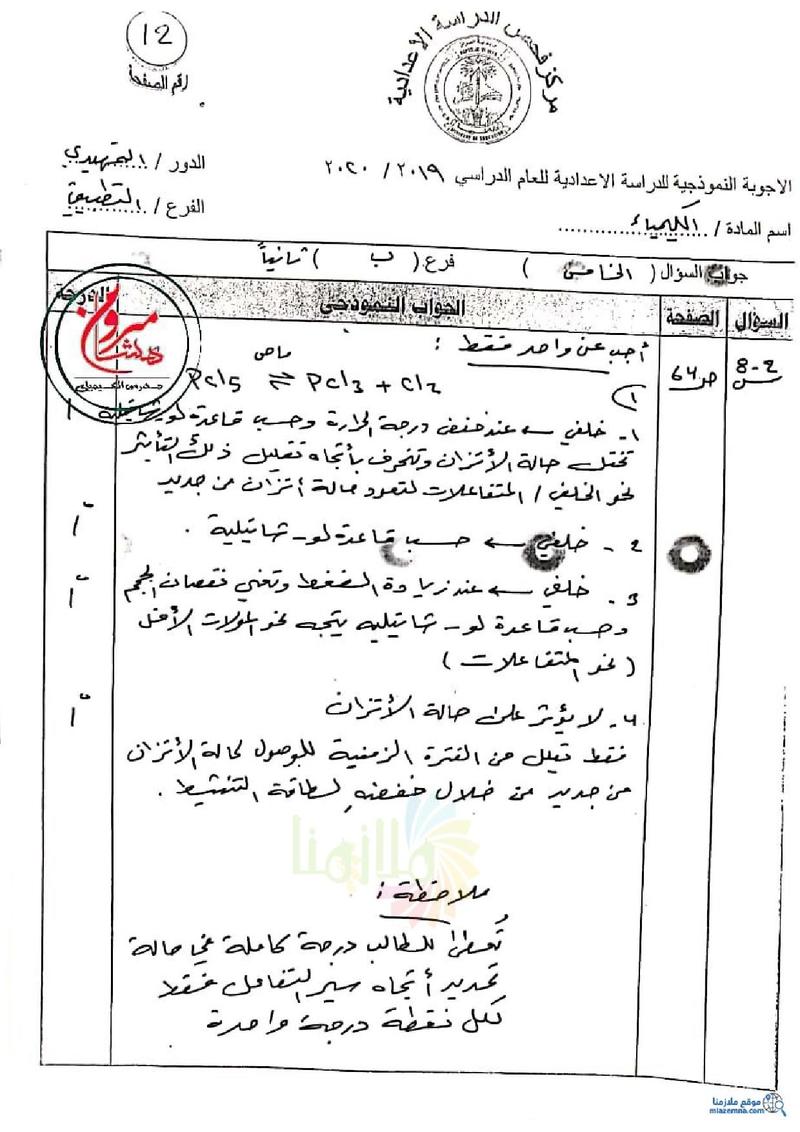 12
رقم الصفحة
مركز فحص الدراسة الاعدادية
الاجوبة النموذجية للدراسة الاعدادية للعام الدراسي ٢٠١٩ / ٢٠٢٠
الدور / التمهيدي
الفرع / التطبيقي
اسم المادة / الكيمياء
جواب السؤال ( الخامس ) فرع ( ب ) ثانياً
السؤال الصفحة الجواب النموذجي الدرجة
8-2
س
ص 64
أجب عن واحد فقط :
ماص
1) PCl5 ⇌ PCl3 + Cl2
١- خلفي ← عند خفض درجة الحرارة وحسب قاعدة لو-شاتيليه ١
تختل حالة الأتزان وتنحرف بأتجاه تقليل ذلك التأثير
نحو الخلفي / المتفاعلات لتعود حالة أتزان من جديد
٢- خلفي ← حسب قاعدة لو-شاتيلية . ١
٣- خلفي ← عند زيادة الضغط وتعني نقصان الحجم ١
وحسب قاعدة لو-شاتيليه يتجه نحو المولات الأقل
( نحو المتفاعلات )
٤- لا يؤثر على حالة الأتزان ١
فقط تقلل من الفترة الزمنية للوصول لحالة الأتزان
من جديد من خلال خفضه لطاقة التنشيط .
ملازمنا
ملاحظة :
تُعطى للطالب درجة كاملة في حالة
تحديد أتجاه سير التفاعل فقط
لكل نقطة درجة واحدة
موقع ملازمنا
mlazemna.com